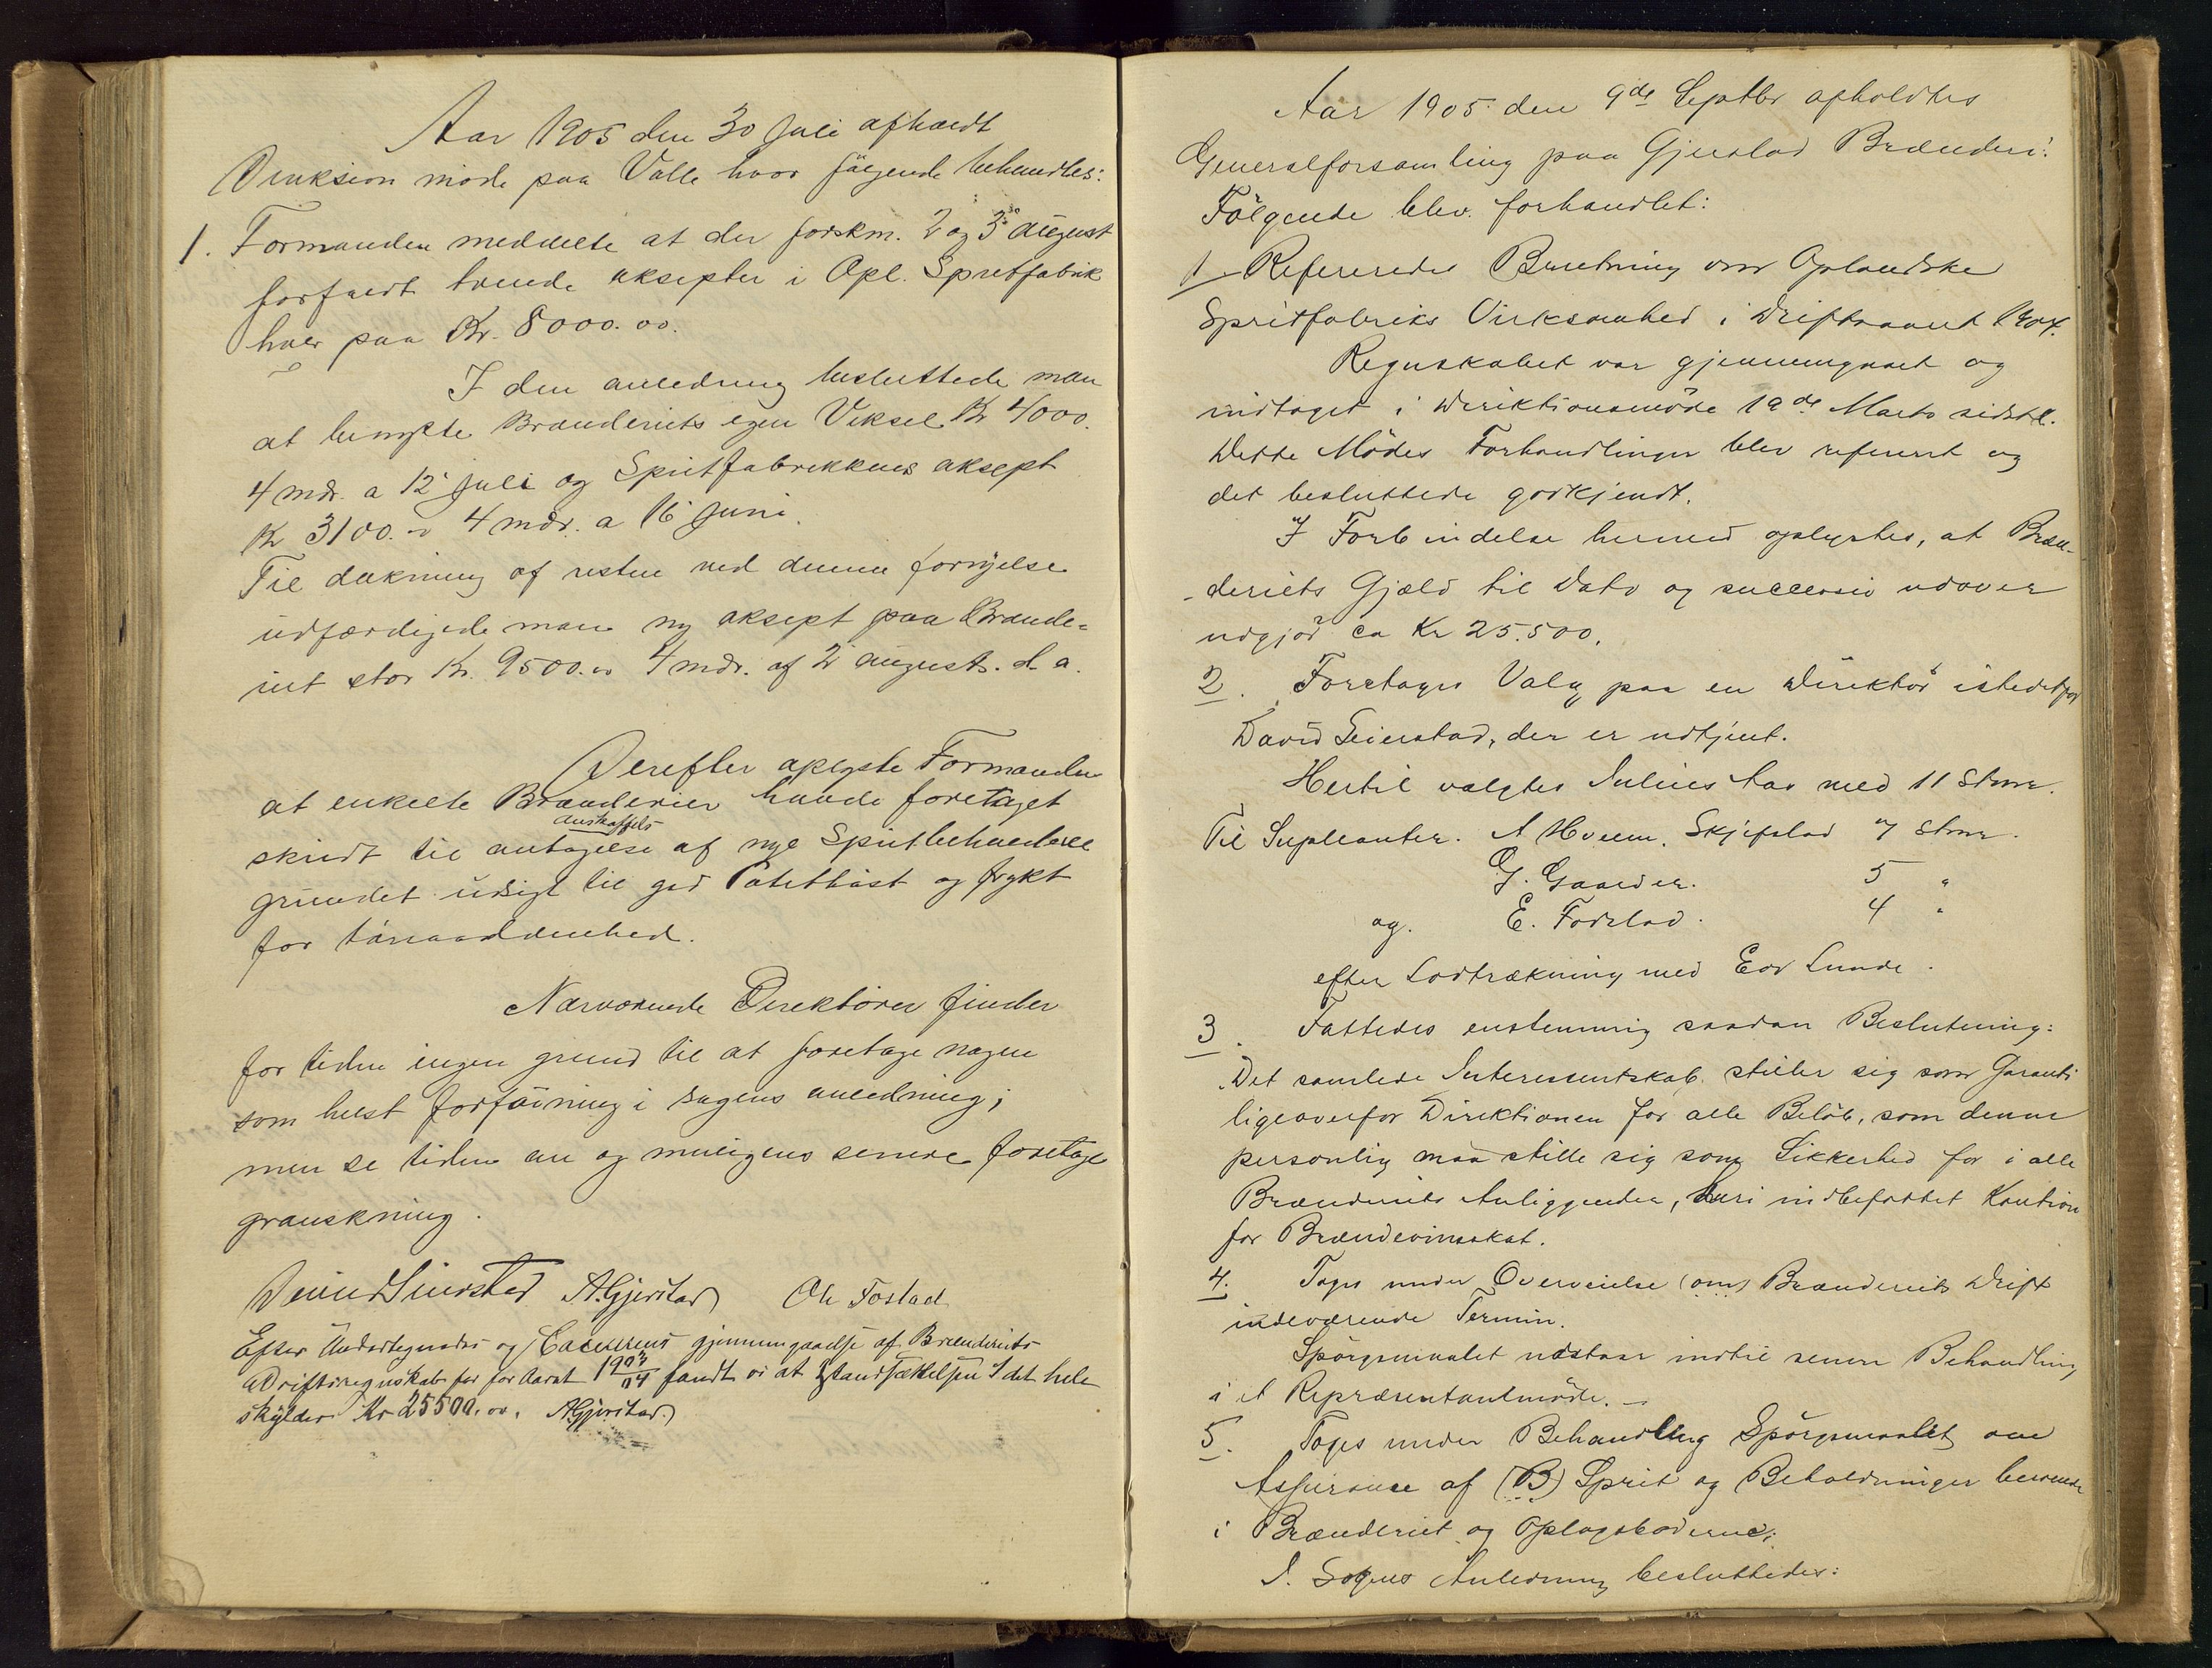 Aar 1905 den 30 Juli afholdt
Direksion möde paa Valle hvor fölgende behandles:
1. Formanden meddelte at der forekm. 2 og 3 august
forfaldt tvende aksepter i Opl. Spritfabrik
hver paa Kr. 8000.00.
I den anledning besluttede man
at benytte Brænderiets egen Veksel Kr 4000.
4 mdr. a 12 juli og Spritfabrikkens aksept
Kr 3100.00 4 mdr. a 16 Juni.
Til dækning af resten ved denne fornyelse
udfærdigede man ny aksept paa Brænde-
riet stor Kr. 9500.00 4 mdr. af 2 august. d. a.
Derefter oplyste Formanden
at enkelte Brænderier havde foretaget
anskaffels
skridt til antagelse af nye Spritbeholdere
grundet udsigt til god Potethöst og frykt
for
Nærværende Direktörer finder
for tiden ingen grund til at foretage nogen
som helst forföining i sagens anledning;
men se tiden an og muligens senere foretage
granskning.
A. Gjerstad Ole Fostad
Efter Undertegnedes og gjennemgaaelse af Brænderiets
Driftsregnskab for for Aaret 1903/04 fandt vi at I det hele
skylder Kr 25500.00. A. Gjerstad
Aar 1905 den 9de Septbr afholdtes
Generalforsamling paa Gjerstad Brænderi:
Fölgende blev forhandlet:
1 Refereredes Beretning om Oplandske
Spritfabriks Virksomhed i Driftsaaret 1904.
Regnskabet var gjennemgaaet og
vedtaget i Direktionsmöde 19de Marts sidstl.
Dette Mödes Forhandlinger blev refereret og
det besluttede godkjendt.
I Forbindelse hermed oplystes, at Bræn-
-deriets Gjæld til Dato og successiv udover
udgjör ca Kr 25.500.
2. Foretoges Valg paa en Direktör istedetfor
David Seierstad, der er udtjent.
Hertil valgtes Julius med 11 Stmr.
Til Supleanter. A Hveem. Skjefstad 7 Stmr.
G. Gaarder. 5 "
og. E. Fodstad. 4 "
efter Lodtrækning med Edv Lunde.
3. Fattedes enstemmig saadan Beslutning:
Det samlede Interessentskab stiller sig som Garanti
ligeoverfor Direktionen for alle Belöb, som denne
personlig maa stille sig som Sikkerhed for i alle
Brænderiets Anliggender, heri indbefattet Kaution
for Brændevinsskat.
4. Toges under Overveielse (om) Brænderiets Drift
indeværende Termin.
Spörgsmaalet udstaar indtil senere Behandling
i et Repræsentantmöde. —
5. Toges under Behandling Spörgsmaalet om
Assurance af (B) Sprit og Beholdninger beroende
i Brænderiet og Oplagsboderne;
I Sagens Anledning besluttedes: